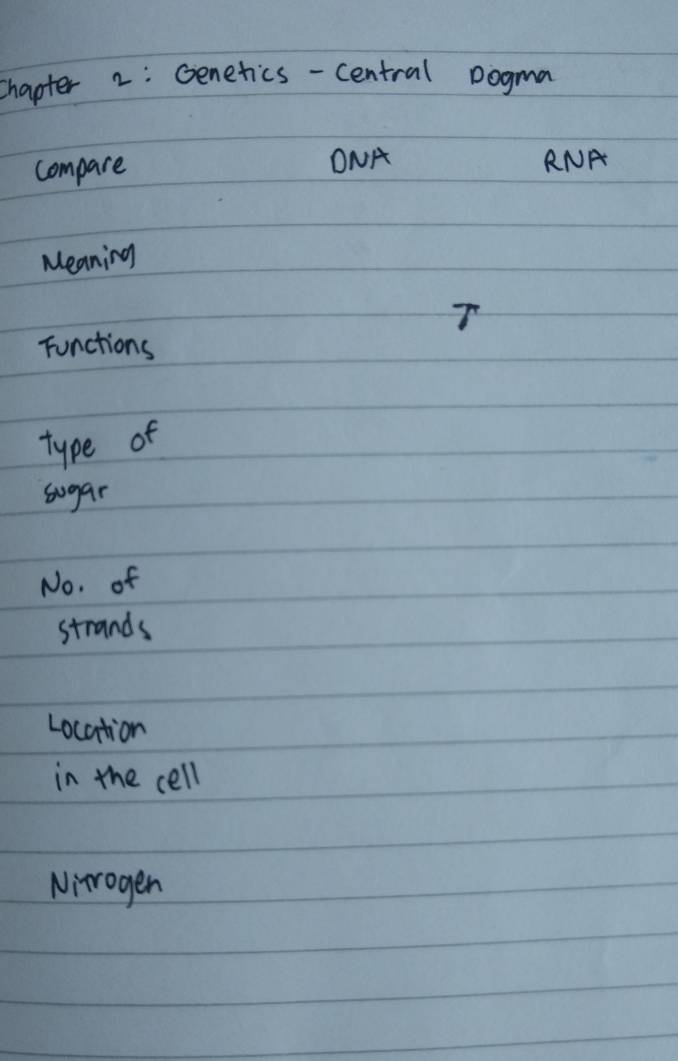 Chapter 2: Genetics - Central Dogma
Compare DNA RNA
Meaning
T
Functions
Type of
sugar
No. of
strands
Location
in the cell
Nitrogen